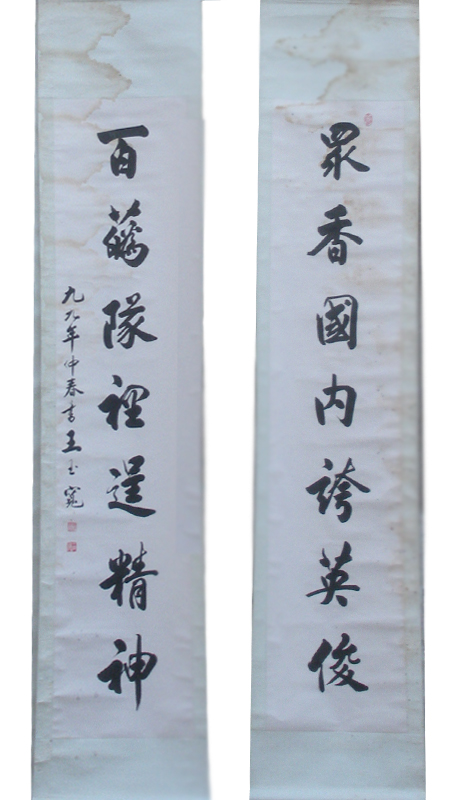 眾香國内誇英俊
百蕊隊裡逞精神
九九年仲春書王玉寬